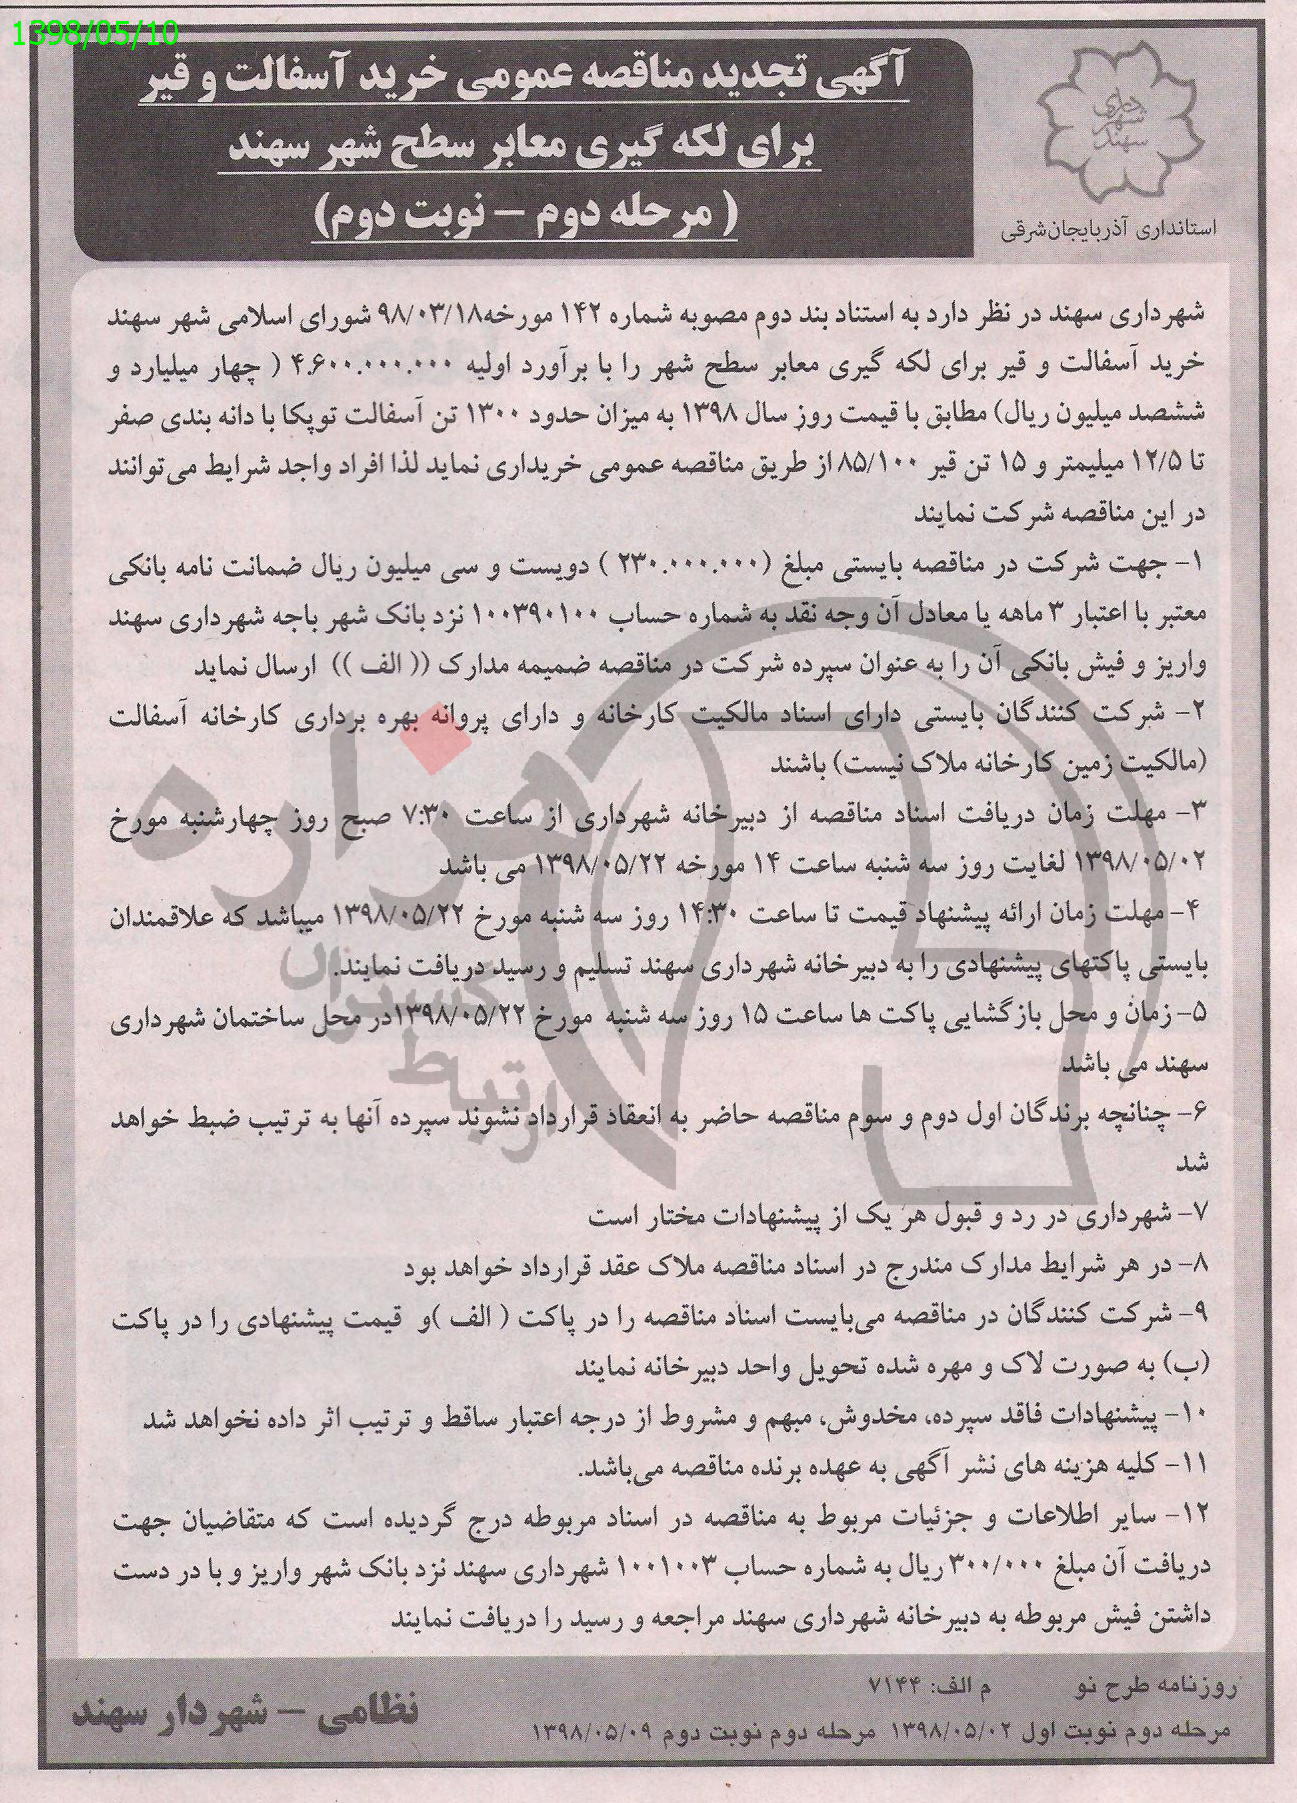 1398/05/10
آگهی تجدید مناقصه عمومی خرید آسفالت و قیر
برای لکه گیری معابر سطح شهر سهند
( مرحله دوم – نوبت دوم)
شهرداری سهند
استانداری آذربایجان‌شرقی
شهرداری سهند در نظر دارد به استناد بند دوم مصوبه شماره ۱۴۲ مورخه۹۸/۰۳/۱۸ شورای اسلامی شهر سهند
خرید آسفالت و قیر برای لکه گیری معابر سطح شهر را با برآورد اولیه ۴.۶۰۰.۰۰۰.۰۰۰ ( چهار میلیارد و
ششصد میلیون ریال) مطابق با قیمت روز سال ۱۳۹۸ به میزان حدود ۱۳۰۰ تن آسفالت توپکا با دانه بندی صفر
تا ۱۲/۵ میلیمتر و ۱۵ تن قیر ۸۵/۱۰۰ از طریق مناقصه عمومی خریداری نماید لذا افراد واجد شرایط می‌توانند
در این مناقصه شرکت نمایند
۱- جهت شرکت در مناقصه بایستی مبلغ (۲۳۰.۰۰۰.۰۰۰ ) دویست و سی میلیون ریال ضمانت نامه بانکی
معتبر با اعتبار ۳ ماهه یا معادل آن وجه نقد به شماره حساب ۱۰۰۳۹۰۱۰۰ نزد بانک شهر باجه شهرداری سهند
واریز و فیش بانکی آن را به عنوان سپرده شرکت در مناقصه ضمیمه مدارک (( الف )) ارسال نماید
۲- شرکت کنندگان بایستی دارای اسناد مالکیت کارخانه و دارای پروانه بهره برداری کارخانه آسفالت
(مالکیت زمین کارخانه ملاک نیست) باشند
۳- مهلت زمان دریافت اسناد مناقصه از دبیرخانه شهرداری از ساعت ۷:۳۰ صبح روز چهارشنبه مورخ
۱۳۹۸/۰۵/۰۲ لغایت روز سه شنبه ساعت ۱۴ مورخه ۱۳۹۸/۰۵/۲۲ می باشد
۴- مهلت زمان ارائه پیشنهاد قیمت تا ساعت ۱۴:۳۰ روز سه شنبه مورخ ۱۳۹۸/۰۵/۲۲ میباشد که علاقمندان
بایستی پاکتهای پیشنهادی را به دبیرخانه شهرداری سهند تسلیم و رسید دریافت نمایند.
۵- زمان و محل بازگشایی پاکت ها ساعت ۱۵ روز سه شنبه مورخ ۱۳۹۸/۰۵/۲۲در محل ساختمان شهرداری
سهند می باشد
۶- چنانچه برندگان اول دوم و سوم مناقصه حاضر به انعقاد قرارداد نشوند سپرده آنها به ترتیب ضبط خواهد
شد
۷- شهرداری در رد و قبول هر یک از پیشنهادات مختار است
۸- در هر شرایط مدارک مندرج در اسناد مناقصه ملاک عقد قرارداد خواهد بود
۹- شرکت کنندگان در مناقصه می‌بایست اسناد مناقصه را در پاکت ( الف )و قیمت پیشنهادی را در پاکت
(ب) به صورت لاک و مهره شده تحویل واحد دبیرخانه نمایند
۱۰- پیشنهادات فاقد سپرده، مخدوش، مبهم و مشروط از درجه اعتبار ساقط و ترتیب اثر داده نخواهد شد
۱۱- کلیه هزینه های نشر آگهی به عهده برنده مناقصه می‌باشد.
۱۲- سایر اطلاعات و جزئیات مربوط به مناقصه در اسناد مربوطه درج گردیده است که متقاضیان جهت
دریافت آن مبلغ ۳۰۰/۰۰۰ ریال به شماره حساب ۱۰۰۱۰۰۳ شهرداری سهند نزد بانک شهر واریز و با در دست
داشتن فیش مربوطه به دبیرخانه شهرداری سهند مراجعه و رسید را دریافت نمایند
روزنامه طرح نو م الف: ۷۱۴۴
مرحله دوم نوبت اول ۱۳۹۸/۰۵/۰۲ مرحله دوم نوبت دوم ۱۳۹۸/۰۵/۰۹
نظامی – شهردار سهند
هزاره
ارتباط